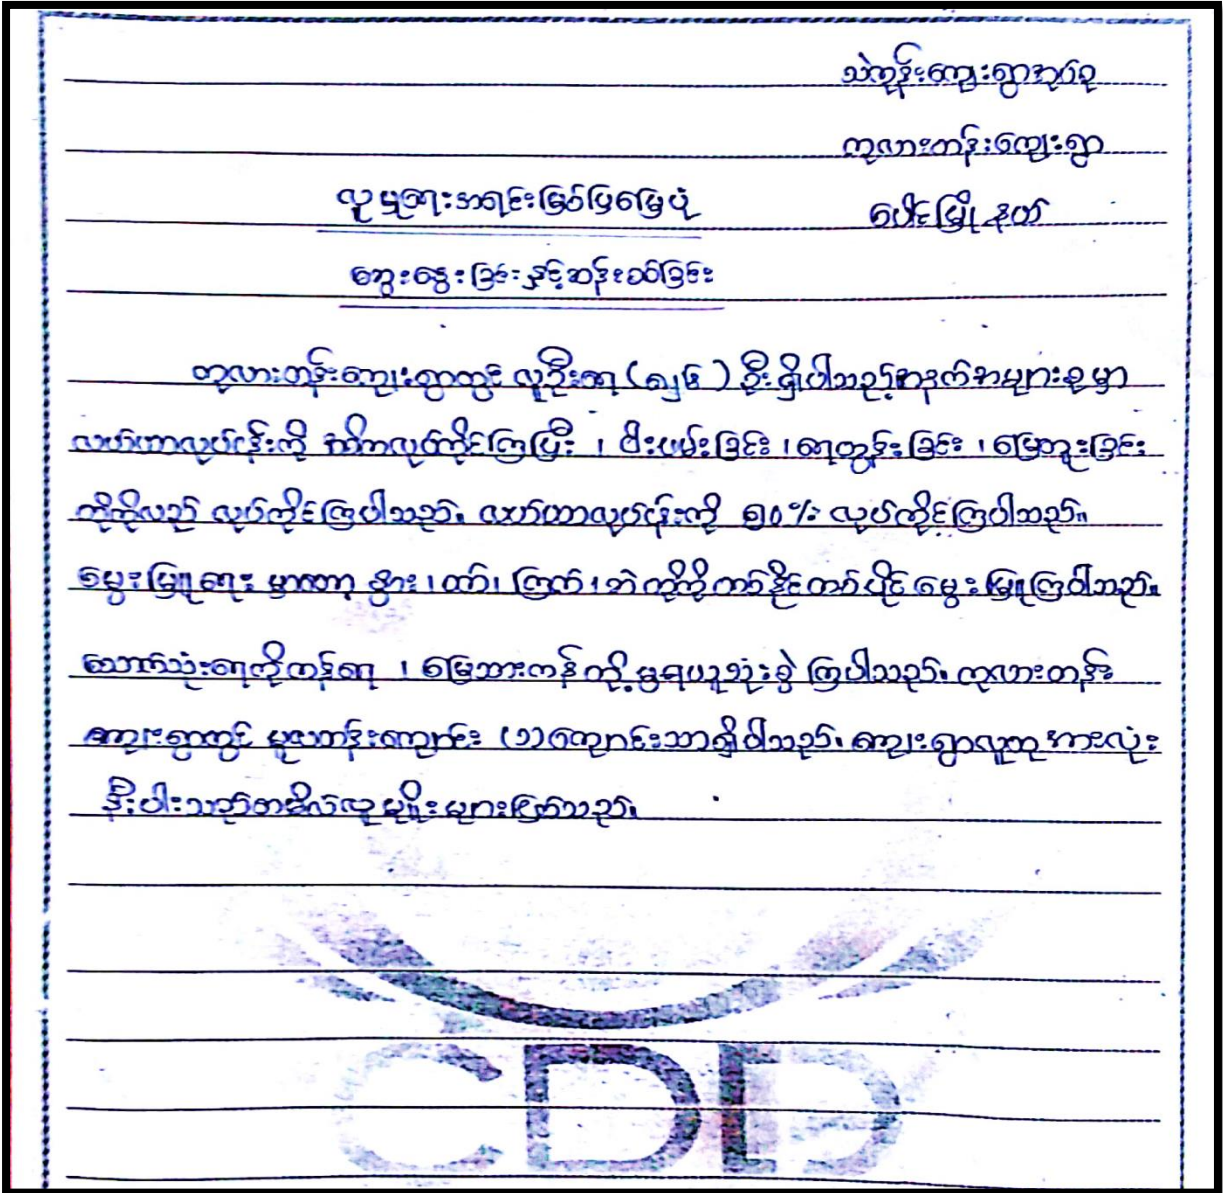 သဲကုန်းကျေးရွာအုပ်စု
ကုလားတန်းကျေးရွာ
လူမှုရေးအရင်းမြစ်ပြမြေပုံ
ပေါင်မြို့နယ်
ဆွေးနွေးခြင်းနှင့်ဆန်းစစ်ခြင်း
ကုလားတန်းကျေးရွာတွင် လူဦးရေ ( ) ဦးရှိပါသည်၊ အများစုမှာ
လယ်ယာလုပ်ငန်းကို အဓိကလုပ်ကိုင်ကြပြီး ၊ ဝါးဖမ်းခြင်း ၊ ရေတွန်းခြင်း ၊ မြေတူးခြင်း
တို့ကိုလည်း လုပ်ကိုင်ကြပါသည်။ လယ်ယာလုပ်ငန်းကို ၅၀% လုပ်ကိုင်ကြပါသည်။
မွေးမြူရေးမှာတော့ နွား ၊ ဝက် ၊ ကြက် ၊ ဘဲ တို့ကို တစ်နိုင်တစ်ပိုင် မွေးမြူကြပါသည်။
သောက်သုံးရေကိုကန်ရေ ၊ မြေသားကန်တို့မှရယူသုံးစွဲကြပါသည်။ ကုလားတန်း
ကျေးရွာတွင် မူလတန်းကျောင်း (၁)ကျောင်းသာရှိပါသည်။ ကျေးရွာလူထုအားလုံး
နီးပါးသည်တမီလ်လူမျိုးများဖြစ်သည်။
CDD